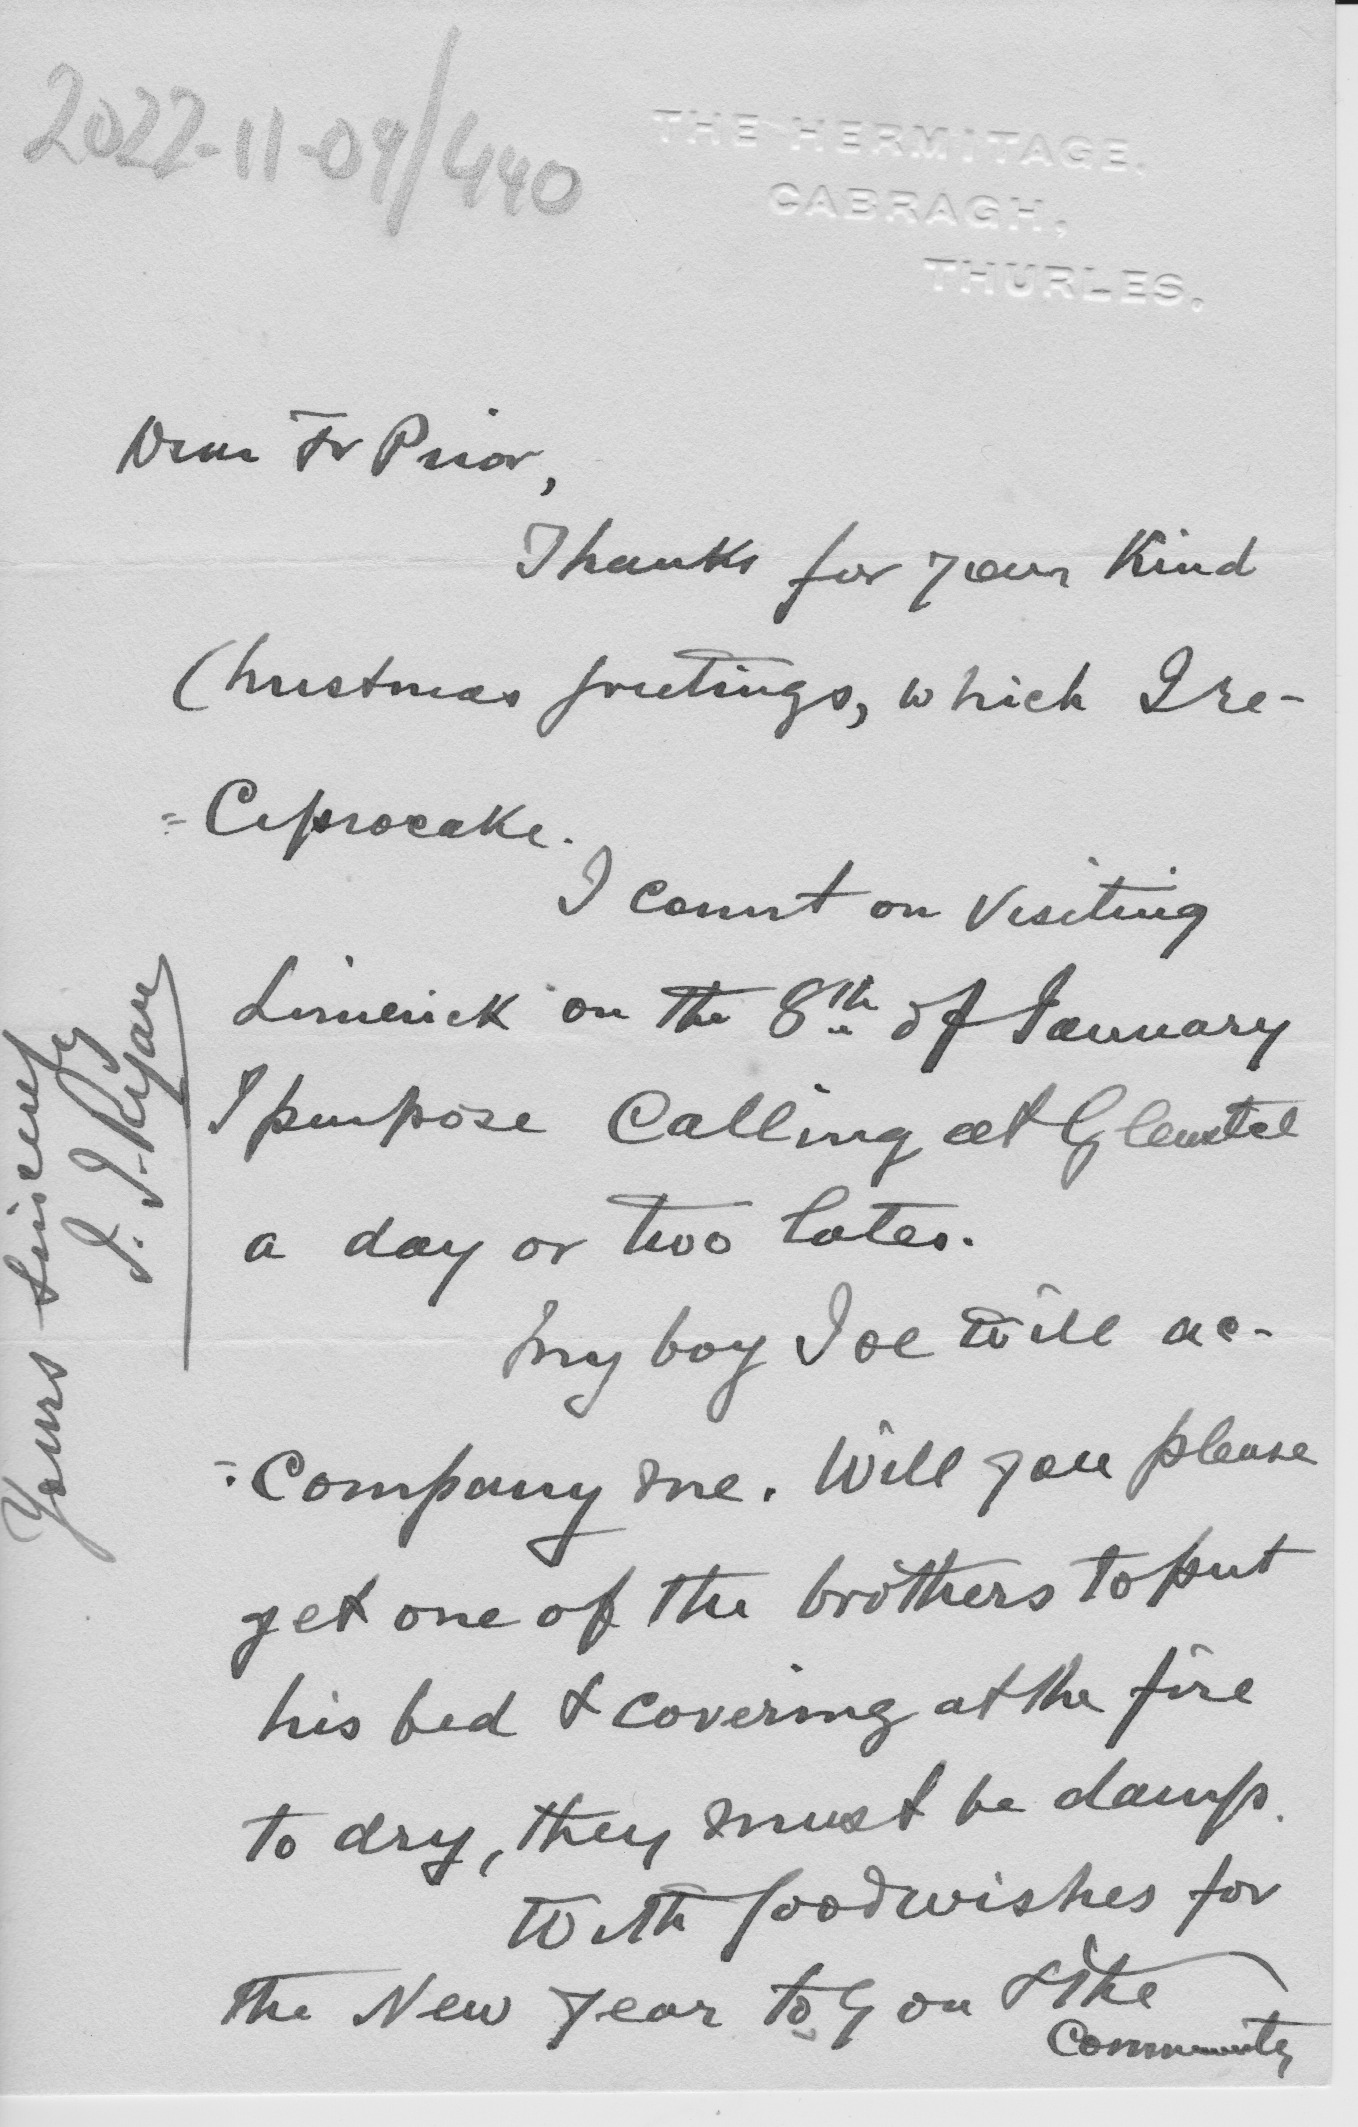 2022-11-09/440
THE HERMITAGE,
CABRAGH,
THURLES.
Dear Fr Prior,
Thanks for your kind
Christmas greetings, which I re-
=ciprocate.
I count on visiting
Limerick on the 8th of January
I purpose calling at Glenstal
a day or two later.
My boy Joe will ac-
=company me. Will you please
get one of the brothers to put
his bed & covering at the fire
to dry, they must be damp.
With good wishes for
the New Year to you & the
Community
Yours sincerely
J. J. Ryan